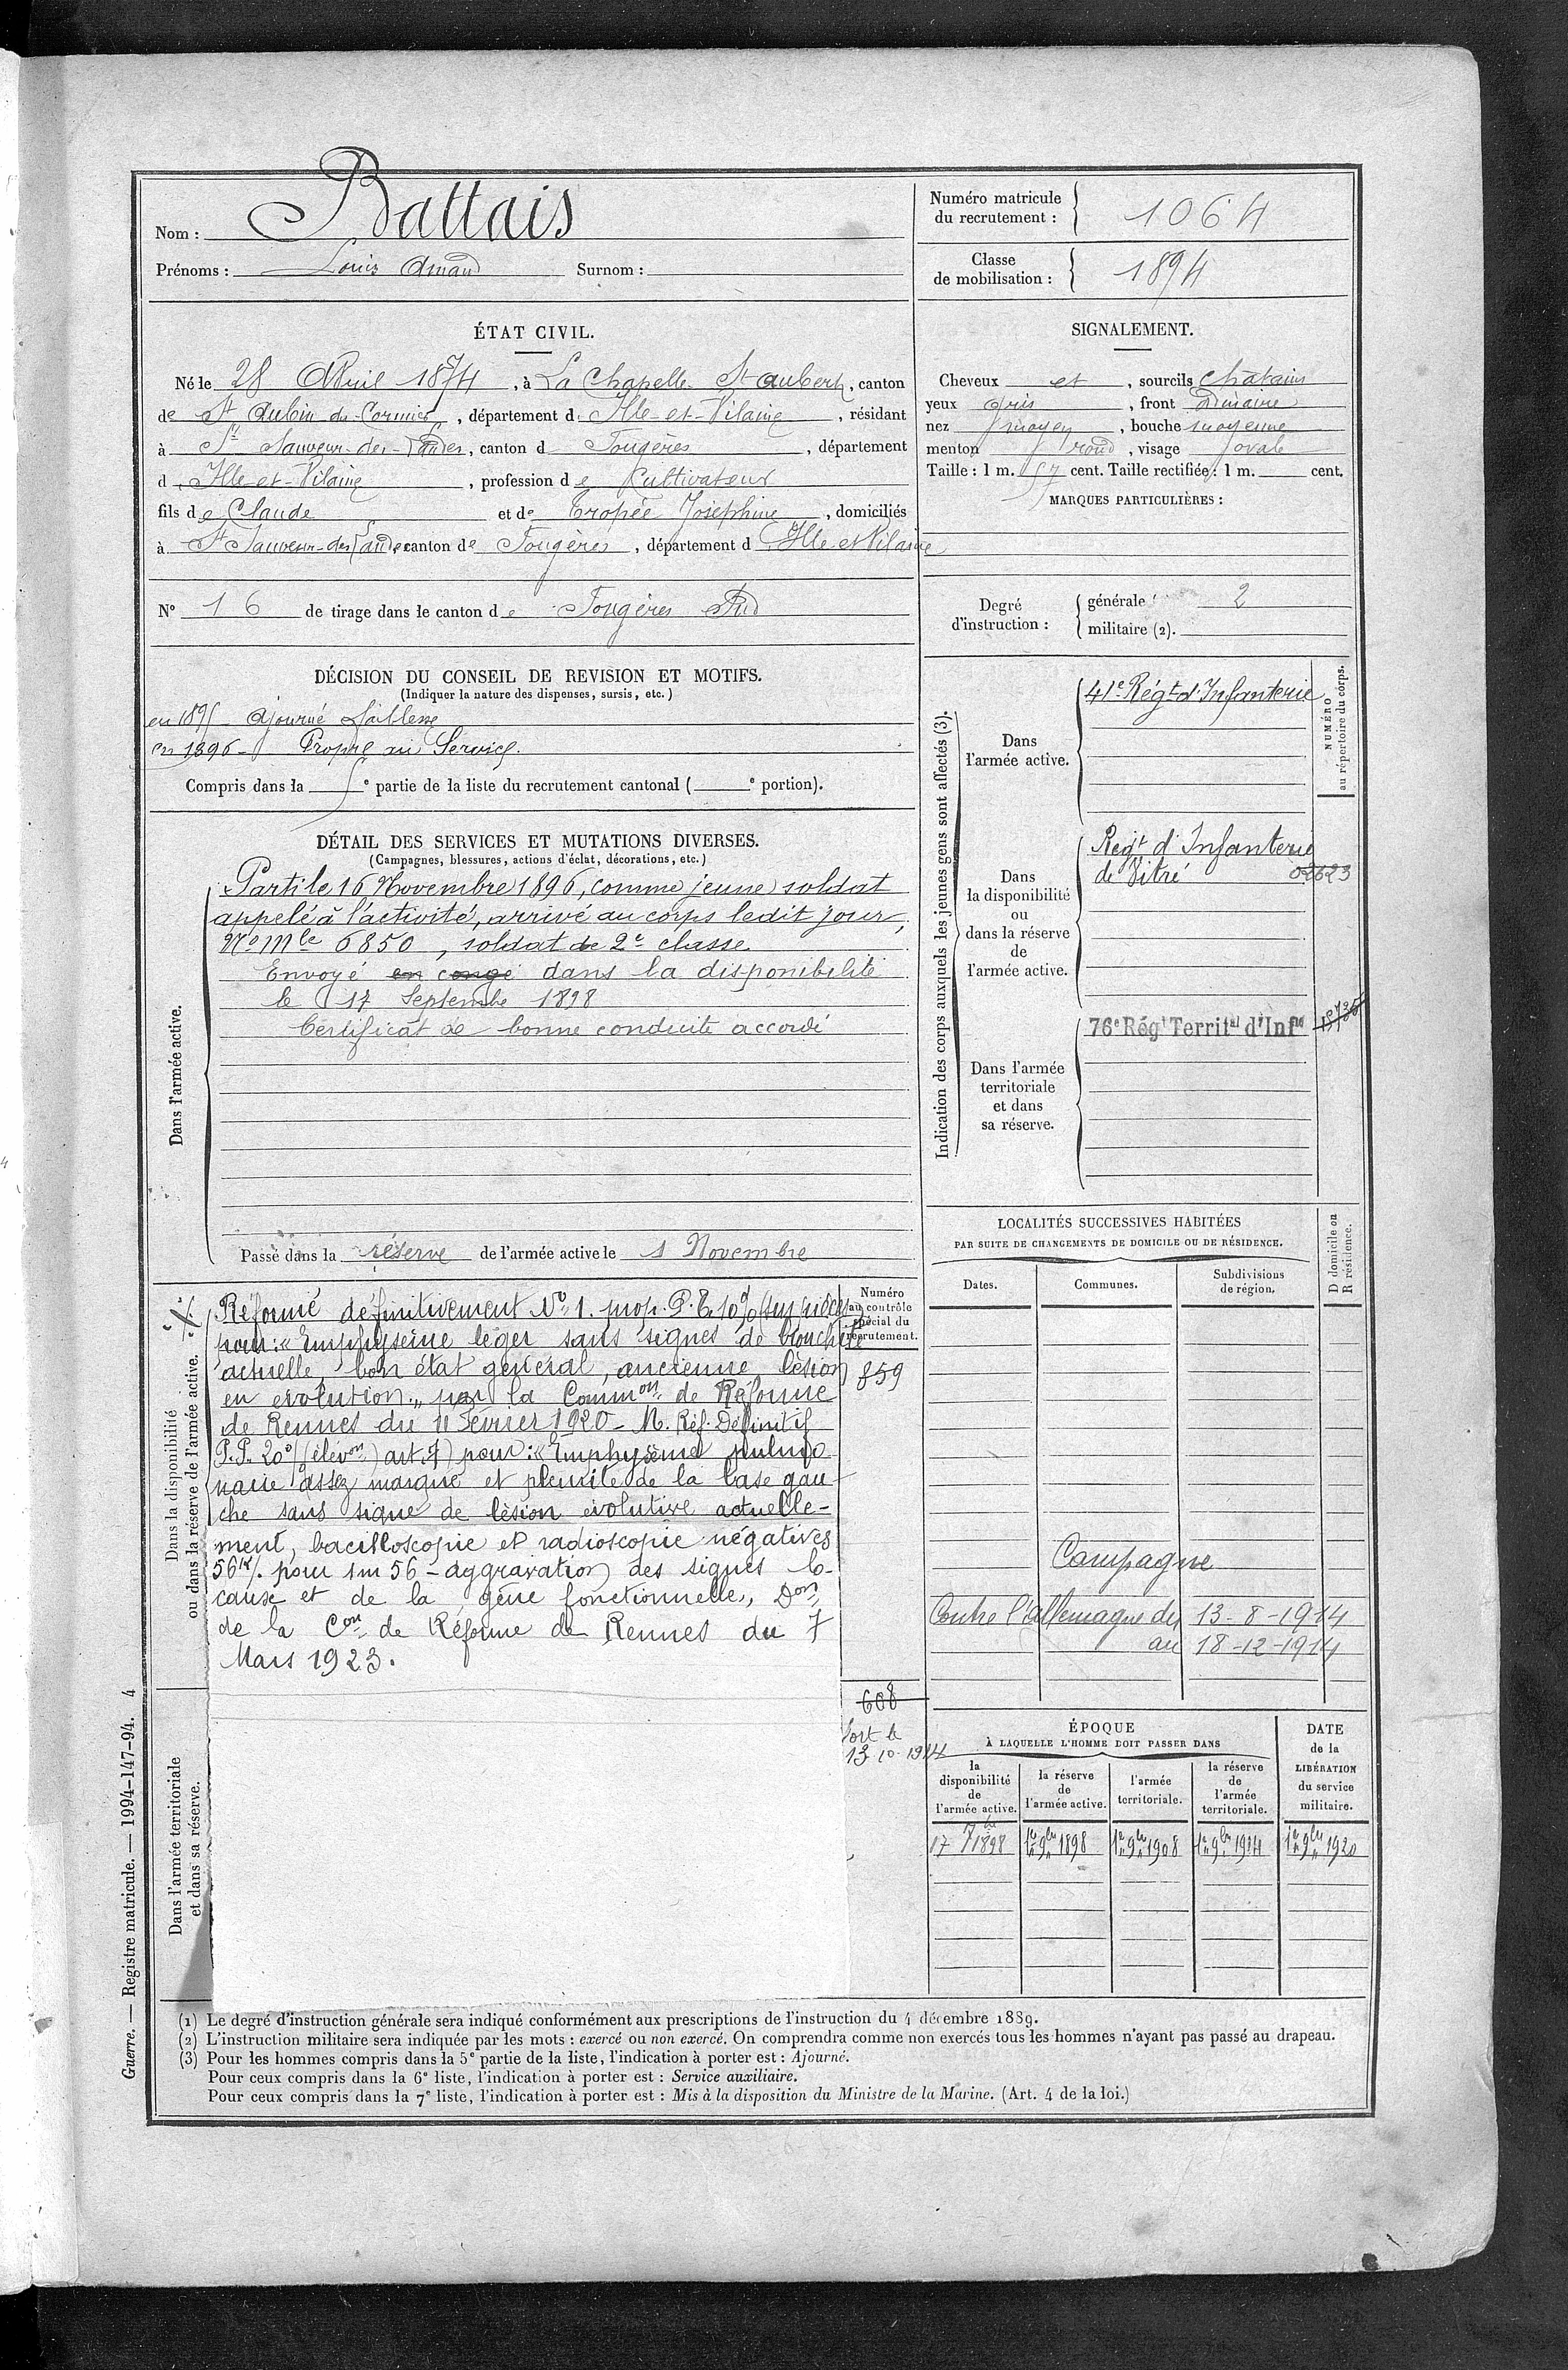 Nom : Battais
Prénoms : Louis Amand Surnom :
Numéro matricule
du recrutement : 1064
Classe
de mobilisation : 1894
ÉTAT CIVIL.
Né le 28 Avril 1874, à La Chapelle St aubert, canton
de St Aubin du Cormier, département d Ille-et-Vilaine, résidant
à St Sauveur-des-Landes, canton d Fougères, département
d Ille-et-Vilaine, profession de Cultivateur
fils de Claude et de Tropée Joséphine, domiciliés
à St Sauveur-des Landes canton de Fougères, département d Ille et Vilaine
N° 16 de tirage dans le canton de Fougères Sud
SIGNALEMENT.
Cheveux et, sourcils châtains
yeux gris, front ordinaire
nez moyen, bouche moyenne
menton rond, visage ovale
Taille : 1 m. 57 cent. Taille rectifiée : 1 m. cent.
MARQUES PARTICULIÈRES :
Degré
d'instruction :
générale 2
militaire (2).
DÉCISION DU CONSEIL DE REVISION ET MOTIFS.
(Indiquer la nature des dispenses, sursis, etc.)
en 1895 - ajourné faiblesse
en 1896 - Propre au Service.
Compris dans la e partie de la liste du recrutement cantonal ( e portion).
DÉTAIL DES SERVICES ET MUTATIONS DIVERSES.
(Campagnes, blessures, actions d'éclat, décorations, etc.)
Dans l'armée active.
Parti le 16 Novembre 1896, comme jeune soldat
appelé à l'activité, arrivé au corps ledit jour,
N° Mle 6850, soldat de 2e classe
Envoyé en congé dans la disponibilité
le 17 Septembre 1898
Certificat de bonne conduite accordé
Passé dans la réserve de l'armée active le 1 Novembre
Indication des corps auxquels les jeunes gens sont affectés (3).
NUMÉRO
au répertoire du corps.
Dans
l'armée active.
41e Régt d'Infanterie
Dans
la disponibilité
ou
dans la réserve
de
l'armée active.
Regt d'Infanterie
de Vitré 02623
Dans l'armée
territoriale
et dans
sa réserve.
76e Régt Territal d'Infie
LOCALITÉS SUCCESSIVES HABITÉES
PAR SUITE DE CHANGEMENTS DE DOMICILE OU DE RÉSIDENCE.
Dates. Communes. Subdivisions
de région.
D domicile ou
R résidence.
Campagne
Contre l'Allemagne du 13-8-1914
au 18-12-1914
Dans la disponibilité
ou dans la réserve de l'armée active.
Numéro
au contrôle
spécial du
recrutement.
859
Réformé définitivement N° 1. prop. P. E. 10% (sur pièces)
pour : « Emphysème léger sans signes de bronchite
actuelle, bon état général, ancienne lésion
en évolution » par la Common de Réforme
de Rennes du 11 Février 1920 - M. Réf. Définitif
P.P. 20% (élévon) art. 7) pour : « Emphysème pulmo
naire assez marqué et pleurite de la base gau
che sans signe de lésion évolutive actuelle-
ment, bacilloscopie et radioscopie négatives
56k/. pour 1m 56 - aggravation des signes
cause et de la gêne fonctionnelle, Don
de la Con de Réforme de Rennes du 7
Mars 1923.
608
Sort le
13-10-1914
Dans l'armée territoriale
et dans sa réserve.
ÉPOQUE
À LAQUELLE L'HOMME DOIT PASSER DANS
la
disponibilité
de
l'armée active.
la réserve
de
l'armée active.
l'armée
territoriale.
la réserve
de
l'armée
territoriale.
DATE
de la
LIBÉRATION
du service
militaire.
17 7bre 1898 1er 9bre 1898 1er 9bre 1908 1er 9bre 1914 1er 9bre 1920
(1) Le degré d'instruction générale sera indiqué conformément aux prescriptions de l'instruction du 4 décembre 1889.
(2) L'instruction militaire sera indiquée par les mots : exercé ou non exercé. On comprendra comme non exercés tous les hommes n'ayant pas passé au drapeau.
(3) Pour les hommes compris dans la 5e partie de la liste, l'indication à porter est : Ajourné.
Pour ceux compris dans la 6e liste, l'indication à porter est : Service auxiliaire.
Pour ceux compris dans la 7e liste, l'indication à porter est : Mis à la disposition du Ministre de la Marine. (Art. 4 de la loi.)
Guerre. — Registre matricule. — 1994-147-94. 4